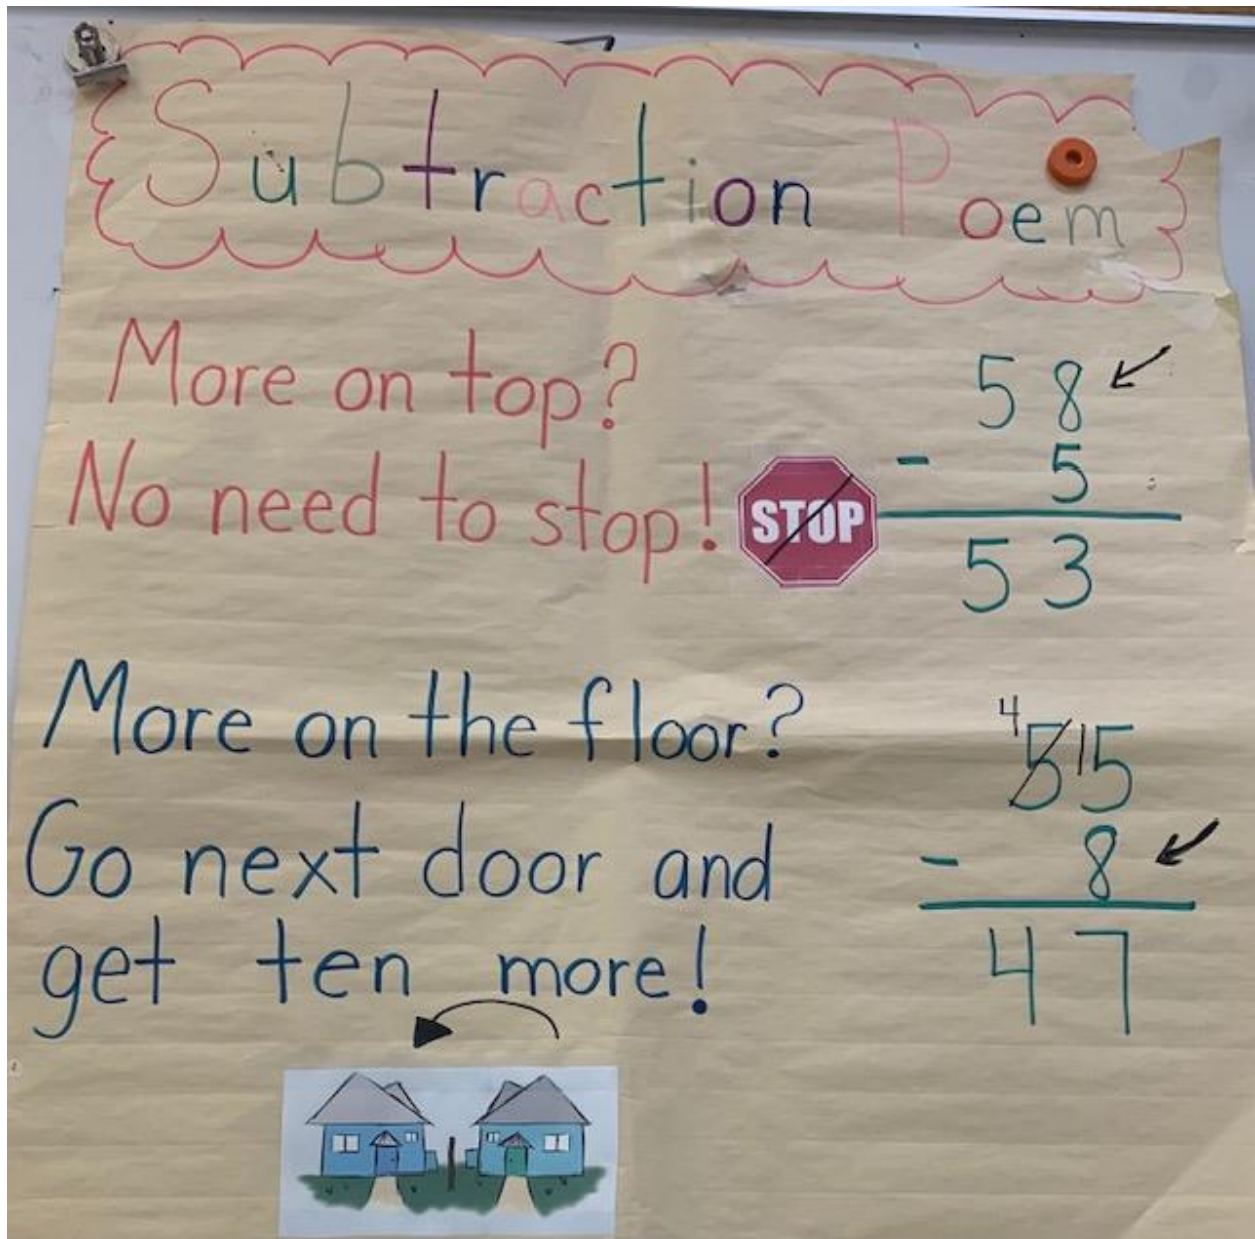 Subtraction Poem
More on top?
No need to stop!
STOP
58
- 5
53
More on the floor?
Go next door and
get ten more!
4
5 15
- 8
47